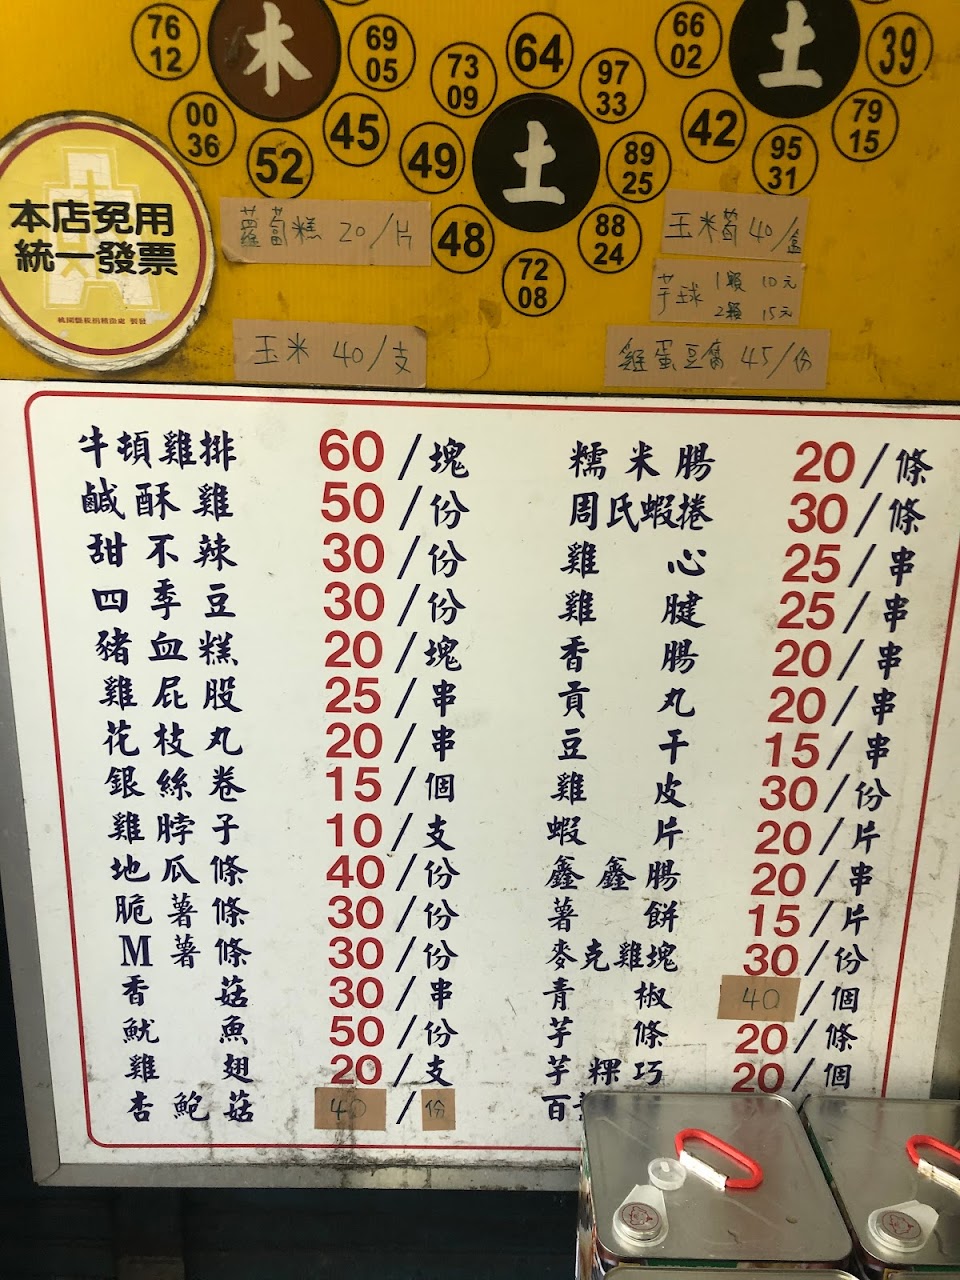 76
12
木
69
05
00
36
52
45
73
09
64
97
33
49
土
89
25
48
88
24
72
08
66
02
土
39
42
79
15
95
31
本店免用
統一發票
蘿蔔糕 20/片
玉米 40/支
玉米筍 40/盒
芋球 1顆 10元
2顆 15元
雞蛋豆腐 45/份
牛頓雞排 60/塊
鹹酥雞 50/份
甜不辣 30/份
四季豆 30/份
豬血糕 20/塊
雞屁股 25/串
花枝丸 20/串
銀絲卷 15/個
雞脖子 10/支
地瓜條 40/份
脆薯條 30/份
M薯條 30/份
香菇 30/串
魷魚 50/份
雞翅 20/支
杏鮑菇 40/份
糯米腸 20/條
周氏蝦捲 30/條
雞心 25/串
雞腱 25/串
香腸 20/串
貢丸 20/串
豆干 15/串
雞皮 30/份
蝦片 20/片
鑫鑫腸 20/串
薯餅 15/片
麥克雞塊 30/份
青椒 40/個
芋條 20/條
芋粿巧 20/個
百